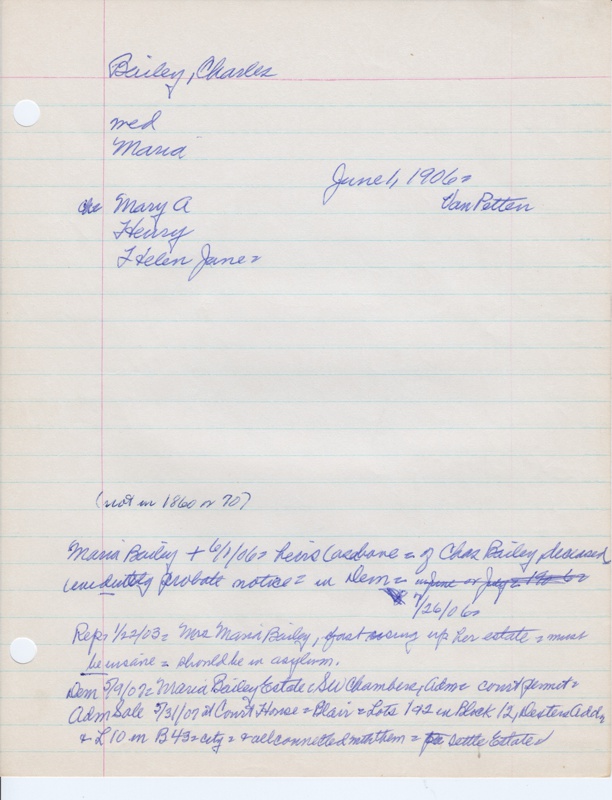 Bailey, Charles
med
Maria
June 1, 1906=
che Mary A
Van Petten
Henry
Helen Jane=
(not in 1860 or 70)
Maria Bailey + 6/1/06= heirs (as above= of Chas Bailey, deceased
probate notice= in Dem= in June or July= 1906=
7/26/06=
Rep: 1/22/03= Mrs Maria Bailey, fast using up her estate= must
be insane= should be in asylum.
Dem 5/9/07= Maria Bailey Estate= SW Chambers, Adm= court permit=
Adm Sale 5/31/07 at Court House= Blair= Lots 1+2 in Block 12, Adds
& L 10 in B 43= city= & all connected with them= settle Estate